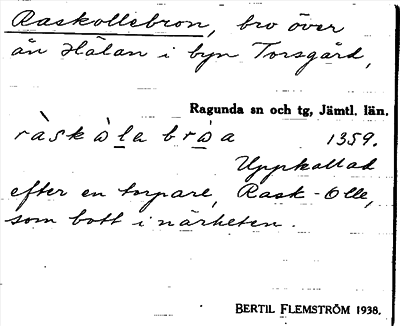 Raskollebron, bro över
ån Hälan i byn Torsgård,
Ragunda sn och tg, Jämtl. län.
ràskàla bròa 1359.
Uppkallad
efter en torpare, Rask-Olle,
som bott i närheten.
BERTIL FLEMSTRÖM 1938.